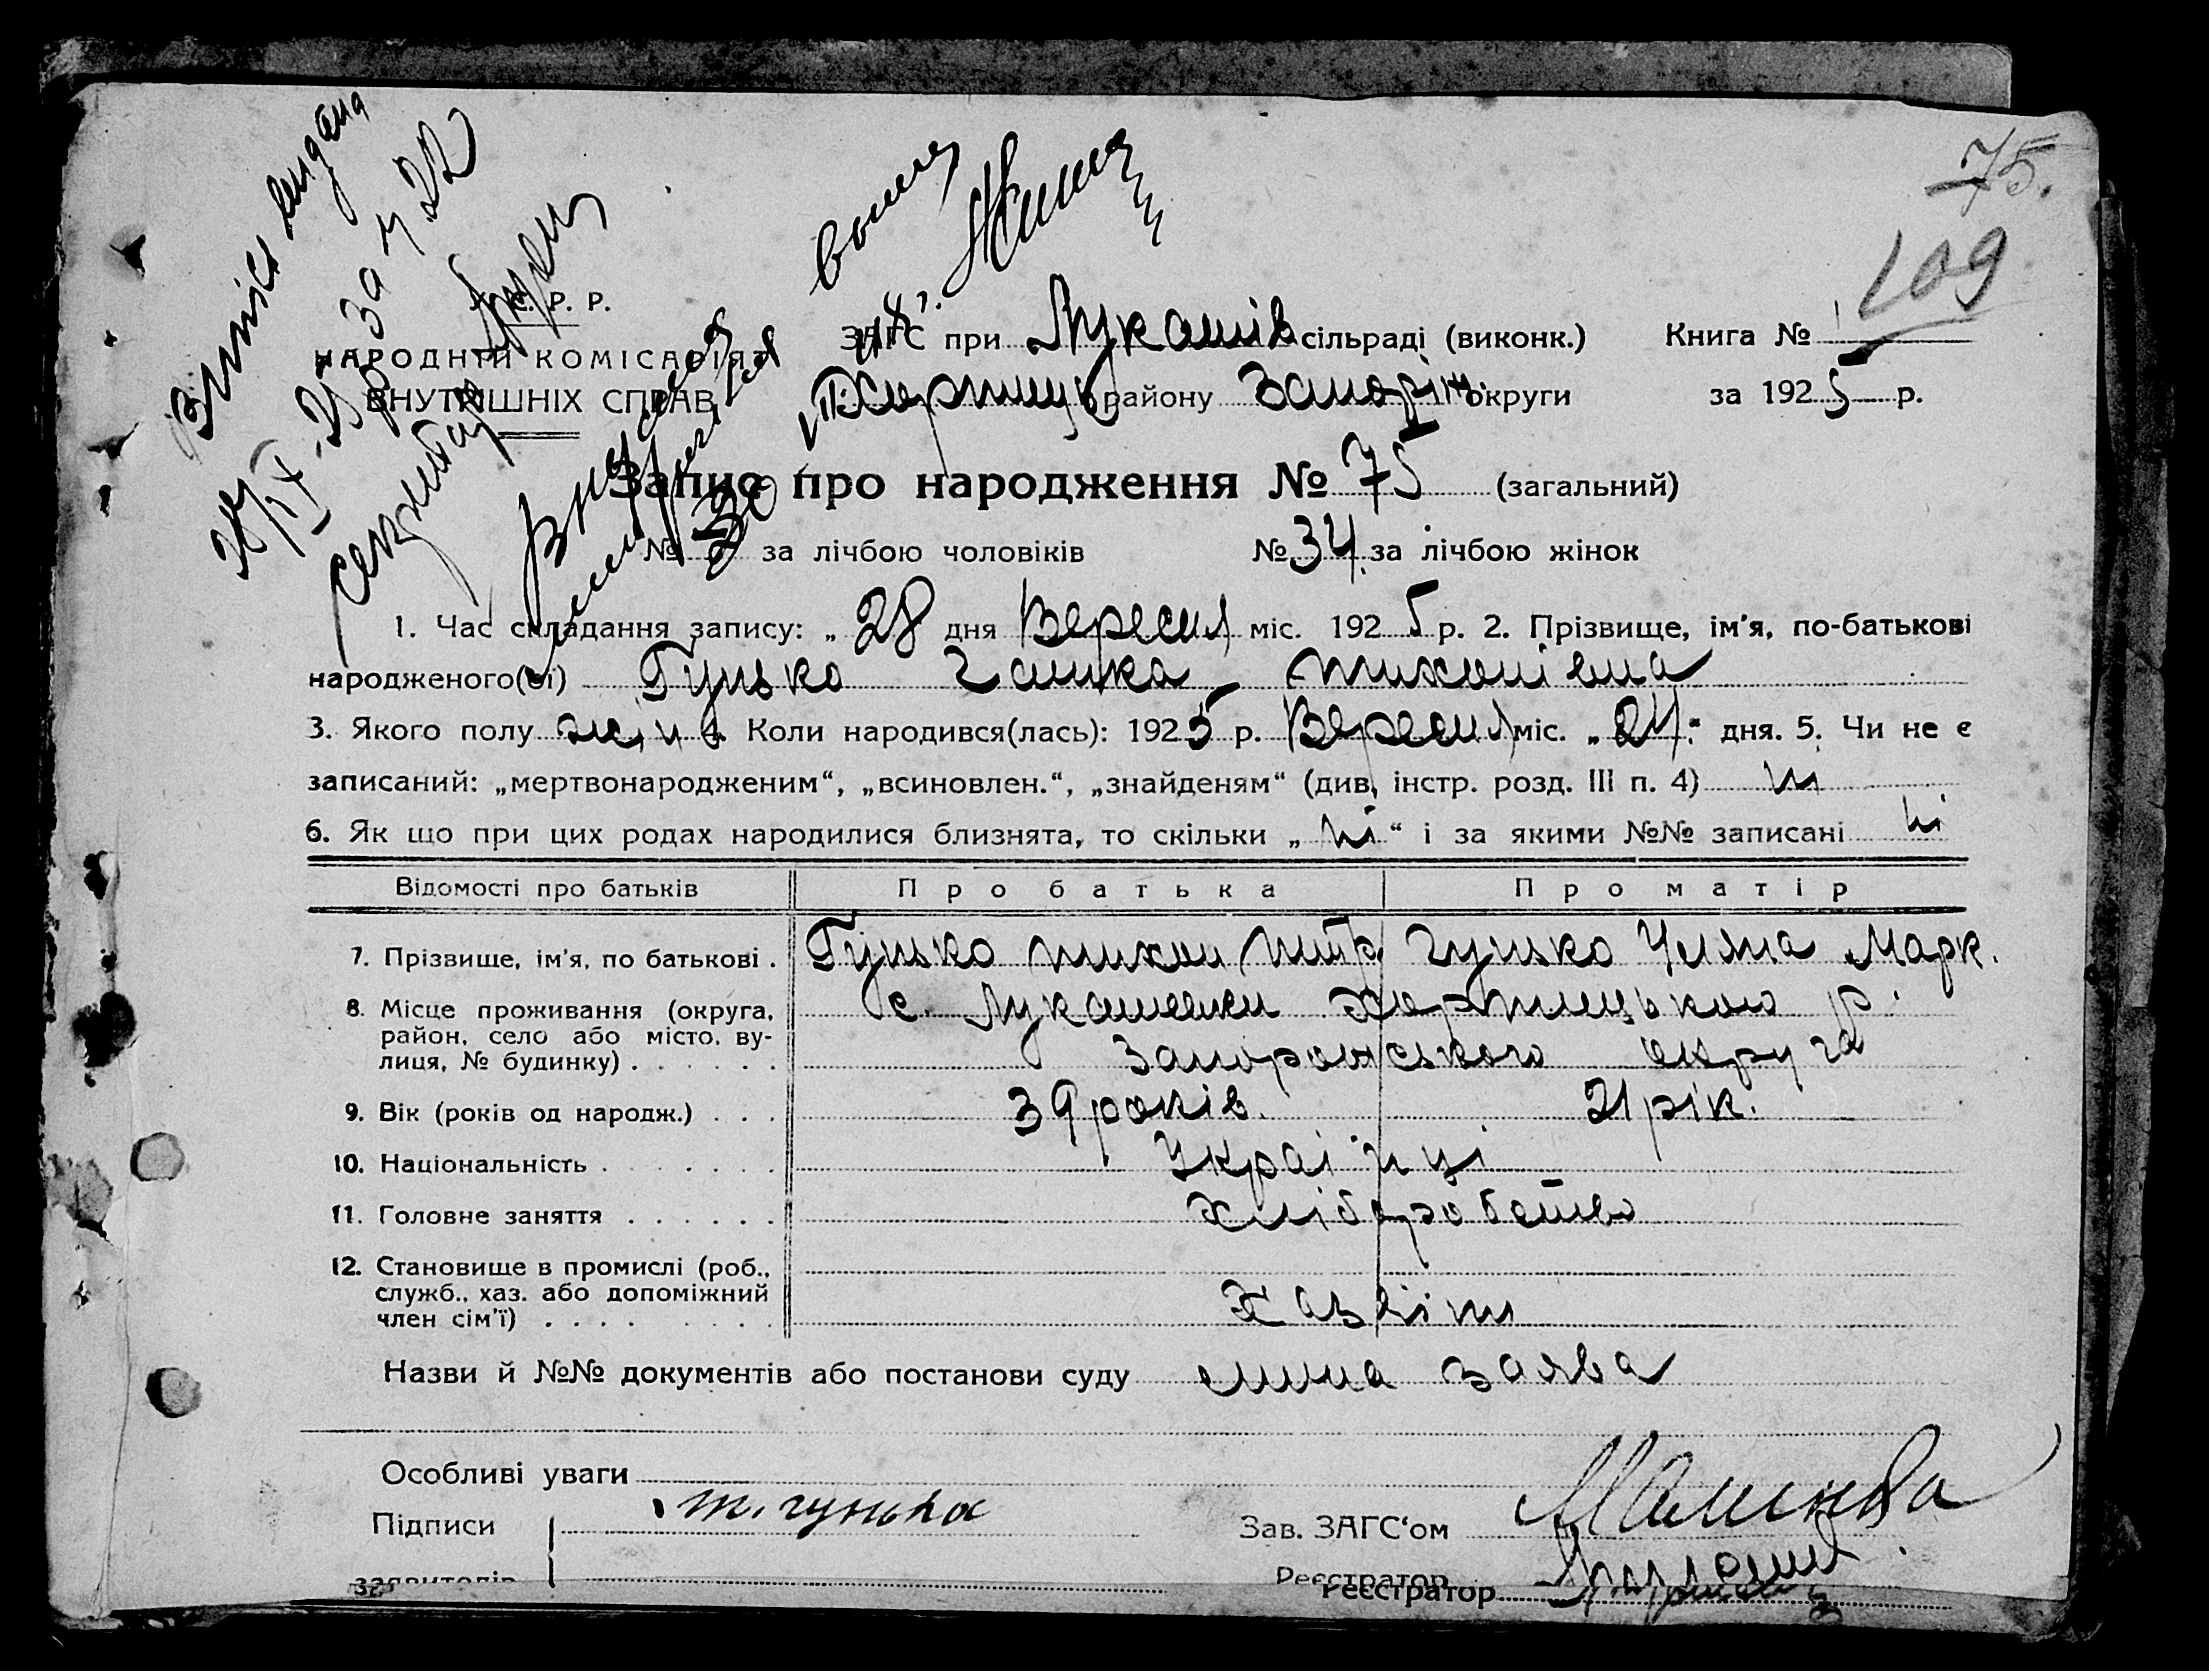 75.
109
Виписъ видана
за ч 22
С. Р. Р.
НАРОДНІЙ КОМІСАРІЯТ
ВНУТРІШНІХ СПРАВ
ЗАГС при Лукашів сільраді (виконк.) Книга №
Хортицьк району Запоріж. округи за 1925 р.
Запис про народження № 75 (загальний)
№ за лічбою чоловіків № 34 за лічбою жінок
1. Час складання запису: „ 28 дня Вересня міс. 1925 р. 2. Прізвище, ім'я, по-батькові
народженого(ої) Гунько Ганка Тихонівна
3. Якого полу жінк 4. Коли народився(лась): 1925 р. Вересня міс. „ 24 " дня. 5. Чи не є
записаний: „мертвонародженим“, „всиновлен.“, „знайденям“ (див. інстр. розд. III п. 4) ні
6. Як що при цих родах народилися близнята, то скільки „ ні “ і за якими №№ записані ні
Відомості про батьків Про батька Про матір
7. Прізвище, ім'я, по батькові . Гунько Тихон Питр Гунько Уляна Марк.
8. Місце проживання (округа, с. Лукашевки Хортицького р.
район, село або місто, ву-
лиця, № будинку) . . . . . . Запорожського округа
9. Вік (років од народж.) . . . 39 років. 21 рік.
10. Національність . . . . . . . Україйнці
11. Головне заняття . . . . . . Хліборобство
12. Становище в промислі (роб.,
служб., хаз. або допоміжний Хазяіни
член сім'ї) . . . . . . . .
Назви й №№ документів або постанови суду заява
Особливі уваги
Підписи т. гунько Зав. ЗАГС‘ом
заявителів Реєстратор
Реєстратор